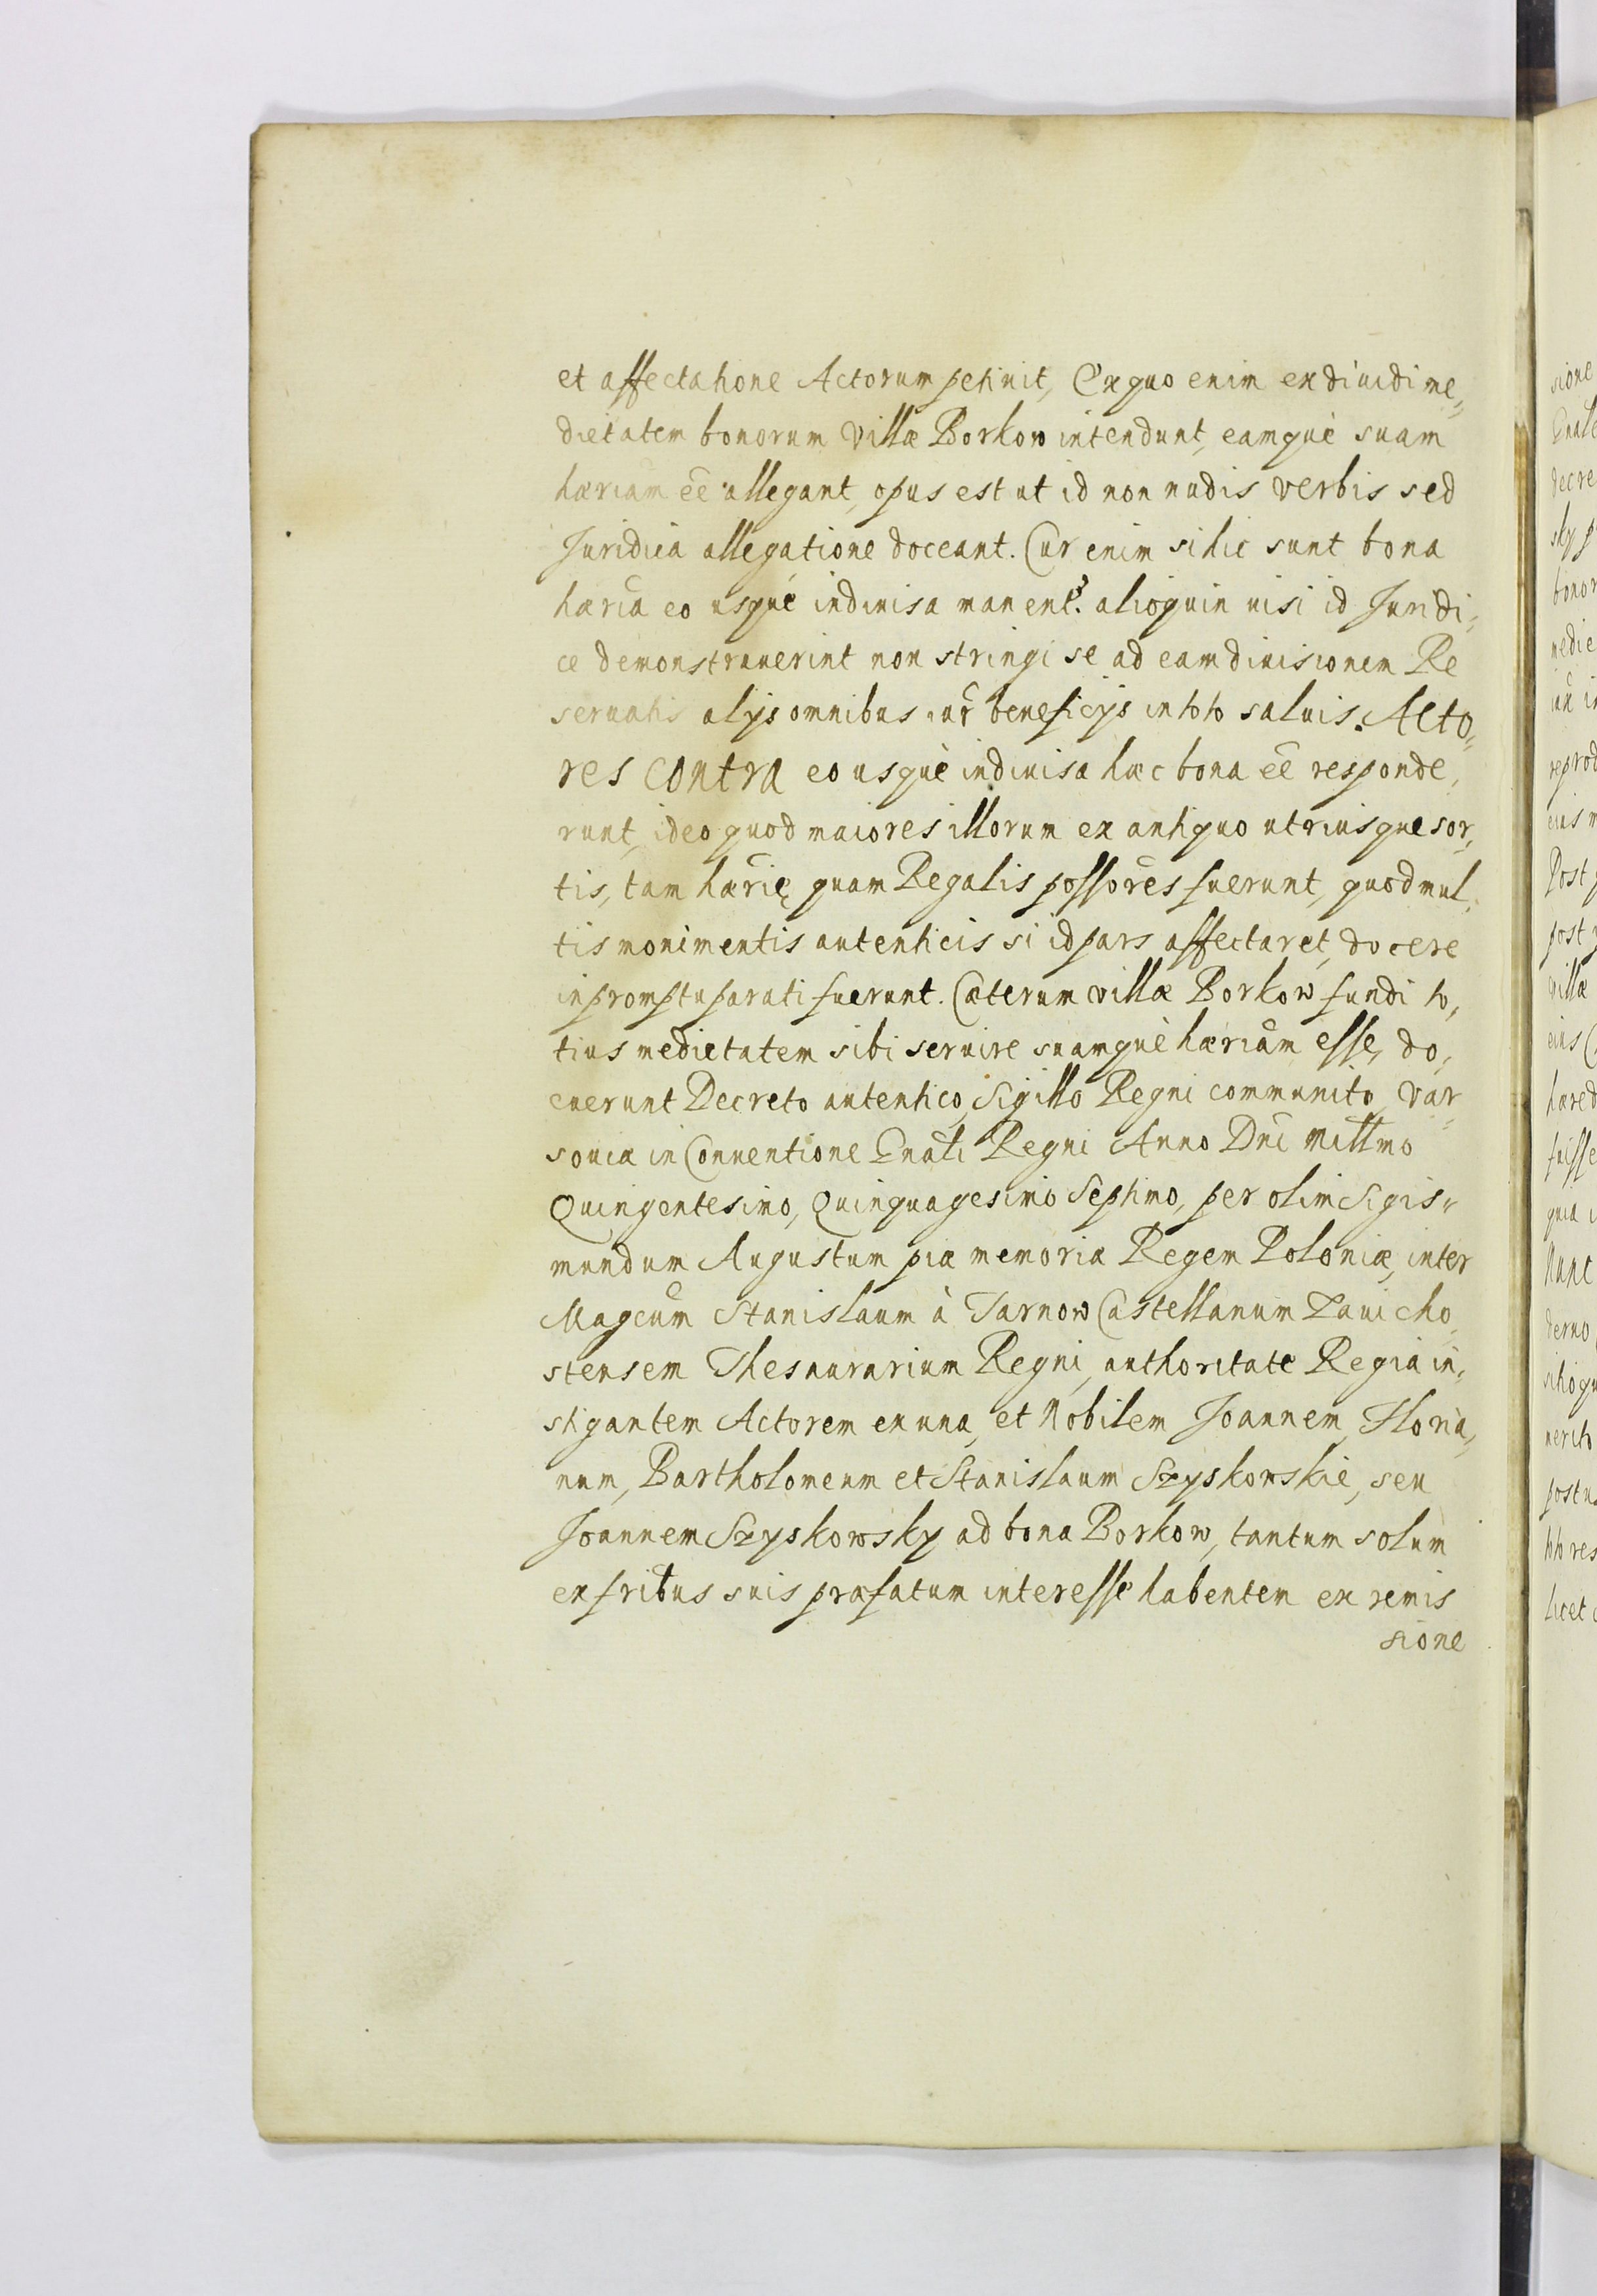 et affectatione Actorum petiuit, Ex quo enim exdiuidi me„
dietatem bonorum Villæ Borkow intendunt, eamquè suam
hæriam eē allegant, opus est ut id non nudis verbis sed
Juridica allegatione doceant. Cur enim si hic sunt bona
hæria eo usquè indiuisa manent? alioquin nisi id Juridi„
ce demonstrauerint non stringi se ad eam diuisionem Re
seruatis alijs omnibus iur beneficijs in toto saluis. Acto„
res contra eo usquè indiuisa hæc bona eē responde„
runt, ideo quod maiores illorum ex antiquo utriusque sor„
tis, tam hærię quam Regalis possores fuerunt, quod mul„
tis monimentis autenticis si id pars affectaret, docere
in promptu parati fuerunt. Cæterum villæ Borkow fundi to„
tius medietatem sibi seruire suamquè hæriam esse, do„
cuerunt Decreto autentico, Sigillo Regni communito, Var„
souiæ in Conuentione Gnali Regni Anno Dni Millmo
Quingentesimo, Quinquagesimo Septimo, per olim Sigis„
mundum Augustum piæ memoriæ Regem Poloniæ, inter
Magcum Stanislaum à Tarnow Castellanum Zauicho„
stensem Thesaurarium Regni, authoritate Regia in„
stigantem Actorem ex una, et Nobilem Joannem, Floria„
num, Bartholomeum et Stanislaum Szyskowskie, seu
Joannem Szyskowsky ad bona Borkow, tantum solum
ex fribus suis præfatum interesse habentem ex remis
sione